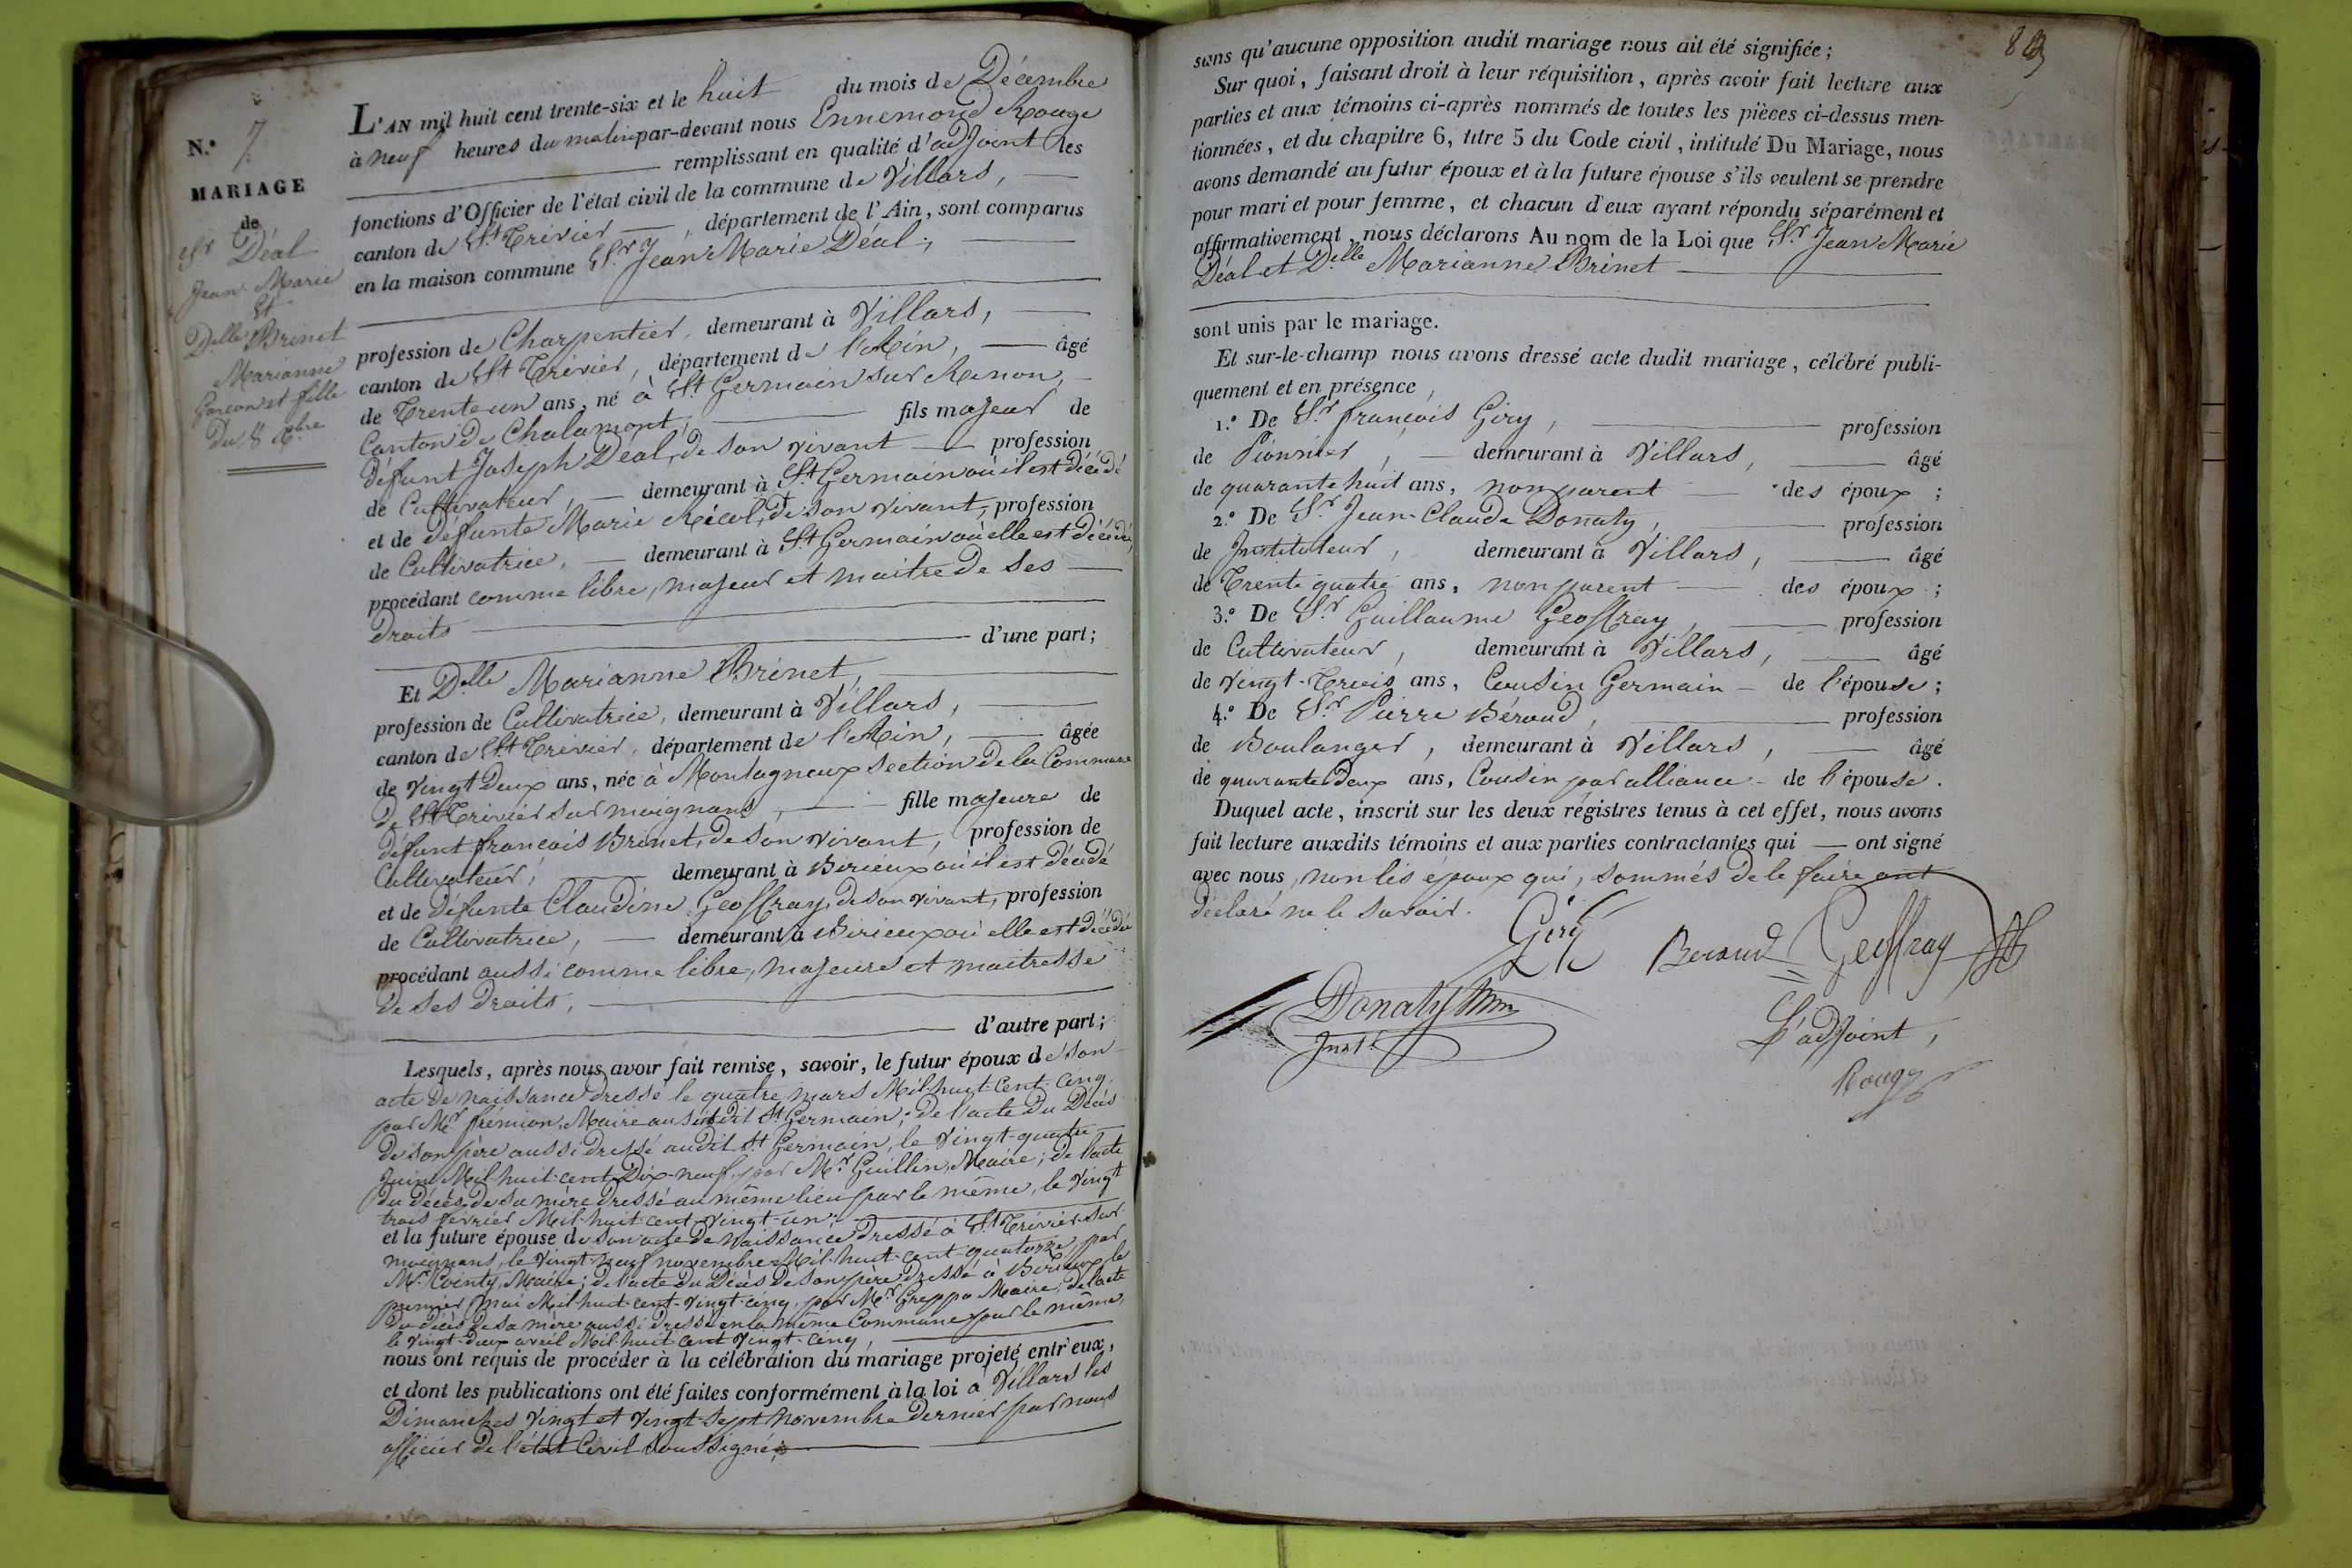 N.° 7
MARIAGE
de
Sr Déal
Jean Marie
Et
Delle Brinet
Marianne
Garçon et fille
Du 8 Xbre
L'AN mil huit cent trente-six et le huit du mois de Décembre
à neuf heures du matin par-devant nous Ennemond Rouge
remplissant en qualité d'adjoint les
fonctions d'Officier de l'état civil de la commune de Villars,
canton de St Trivier, département de l'Ain, sont comparus
en la maison commune Sr. Jean Marie Déal,
profession de Charpentier, demeurant à Villars,
canton de St Trivier, département de l'Ain, âgé
de Trente un ans, né à St Germain sur Renon,
Canton de Chalamont, fils majeur de
défunt Joseph Déal, de son vivant profession
de Cultivateur, demeurant à St Germain où il est décédé
et de défunte Marie Récol, de son vivant, profession
de Cultivatrice, demeurant à St Germain où elle est décédée,
procédant comme libre, majeur et maitre de ses
Droits
d'une part;
Et Delle Marianne Brinet,
profession de Cultivatrice, demeurant à Villars,
canton de St Trivier, département de l'Ain, âgée
de vingt Deux ans, née à Montagneux section de la Commune
de St Trivier sur moignans, fille majeure de
défunt françois Brinet, de son vivant, profession de
Cultivateur, demeurant à Birieux où il est décédé
et de défunte Claudine Geoffray, de son vivant, profession
de Cultivatrice, demeurant à Birieux où elle est décédée
procédant aussi comme libre, majeure et maitresse
de ses droits,
d'autre part;
Lesquels, après nous avoir fait remise, savoir, le futur époux de son
acte de naissance dressé le quatre mars Mil-huit-cent-cinq,
par Mr frémion, Maire au susdit St Germain; de l'acte du Décès
de son père aussi dressé audit St Germain, le vingt-quatre
Juin Mil-huit-cent Dix-neuf, par Mr. Guillin, Maire; de l'acte
du décès de sa mère dressé au même lieu par le même, le vingt
trois février Mil-huit-cent-vingt-un;
et la future épouse de son acte de naissance dressé à St Trivier sur
moignans, le vingt-neuf novembre Mil-huit-cent-quatorze, par
Mr. Cointy, Maire; de l'acte du Décès de son père dressé à Birieux le
premier mai Mil-huit-cent-vingt-cinq, par Mr. Greppo Maire, de l'acte
du décès de sa mère aussi dressé en la même Commune par le même,
le vingt-deux avril Mil huit cent vingt-cinq,
nous ont requis de procéder à la célébration du mariage projeté entr'eux,
et dont les publications ont été faites conformément à la loi à Villars les
Dimanches vingt et vingt-sept novembre dernier par nous
officier de l'état Civil soussigné;
sans qu'aucune opposition audit mariage nous ait été signifiée;
Sur quoi, faisant droit à leur réquisition, après avoir fait lecture aux
parties et aux témoins ci-après nommés de toutes les pièces ci-dessus men-
tionnées, et du chapitre 6, titre 5 du Code civil, intitulé Du Mariage, nous
avons demandé au futur époux et à la future épouse s'ils veulent se prendre
pour mari et pour femme, et chacun d'eux ayant répondu séparément et
affirmativement, nous déclarons Au nom de la Loi que Sr. Jean Marie
Déal et Delle Marianne Brinet
sont unis par le mariage.
Et sur-le-champ nous avons dressé acte dudit mariage, célébré publi-
quement et en présence,
1.° De Sr. françois Gery, profession
de Pionnier, demeurant à Villars, âgé
de quarante huit ans, non parent des époux;
2.° De Sr. Jean-Claude Donaty, profession
de Instituteur, demeurant à Villars, âgé
de Trente quatre ans, non parent des époux;
3.° De Sr. Guillaume Geoffray, profession
de Cultivateur, demeurant à Villars, âgé
de vingt-trois ans, Cousin Germain de l'épouse;
4.° De Sr. Pierre Béraud, profession
de Boulanger, demeurant à Villars, âgé
de quarante Deux ans, Cousin par alliance de l'épouse.
Duquel acte, inscrit sur les deux régistres tenus à cet effet, nous avons
fait lecture auxdits témoins et aux parties contractantes qui ont signé
avec nous, non les époux qui, sommés de le faire ont
déclaré ne le savoir.
Gery
Beraud Geoffray
Donaty
Inst.
L'adjoint,
Rouge